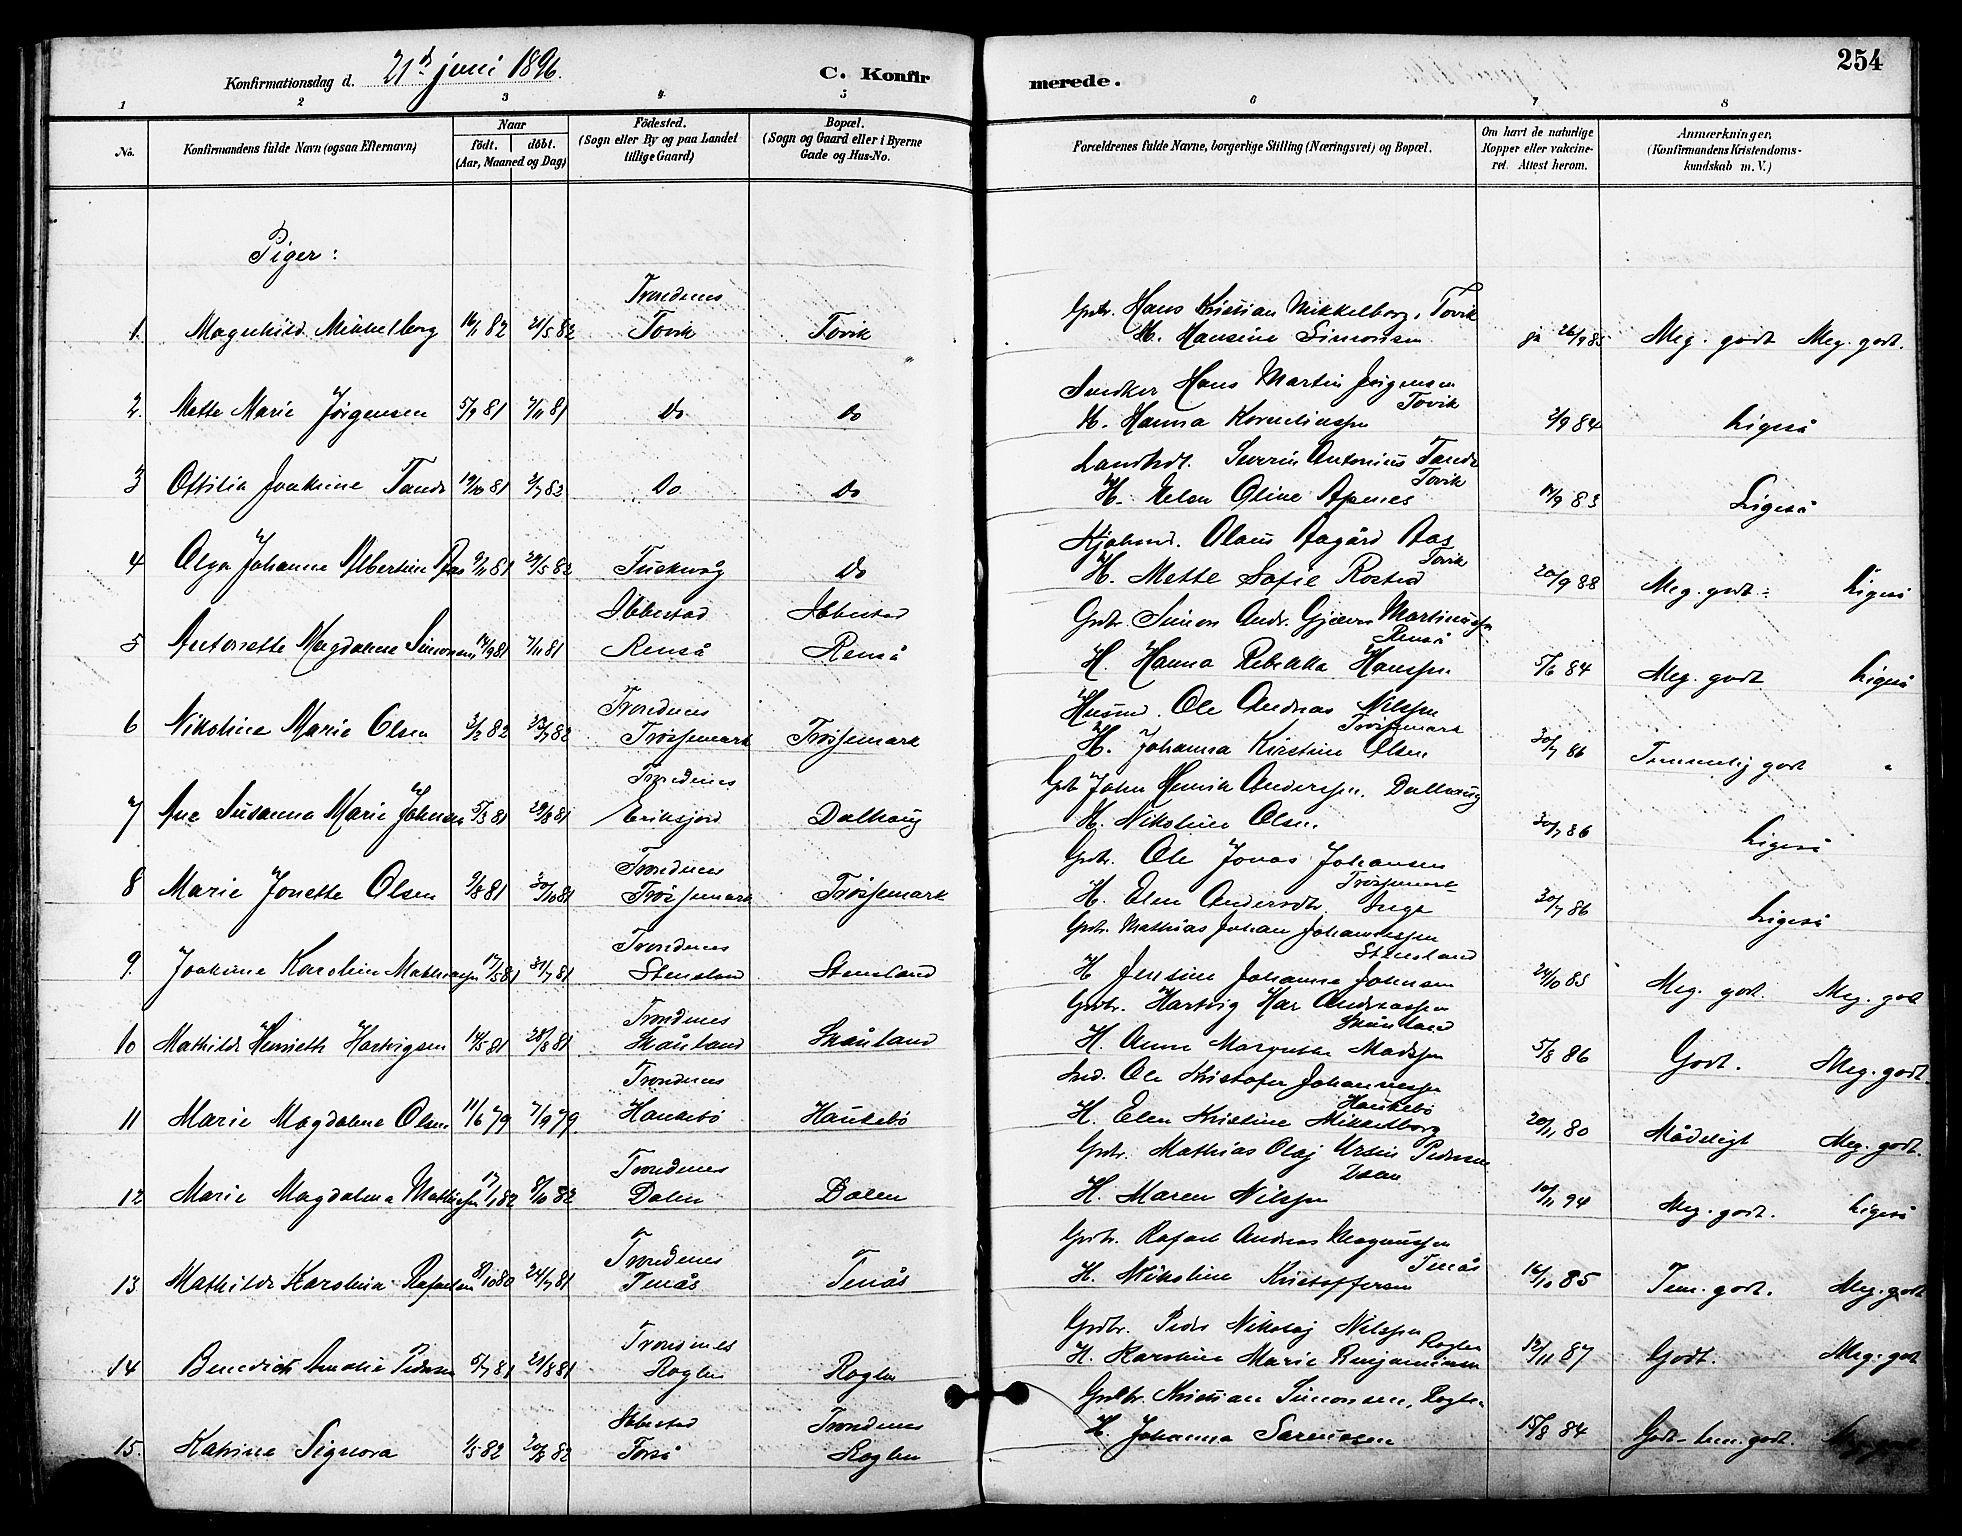 254
Konfirmationsdag d. 21d juni 1896.
C. Konfirmerede.
1 2 3 4 5 6 7 8
No.
Konfirmandens fulde Navn (ogsaa Efternavn)
Naar
født. døbt.
(Aar, Maaned og Dag)
Fødested.
(Sogn eller By og paa Landet
tillige Gaard)
Bopæl.
(Sogn og Gaard eller i Byerne
Gade og Hus-No.
Forældrenes fulde Navne, borgerlige Stilling (Næringsvei) og Bopæl.
Om havt de naturlige
Kopper eller vakcine-
ret. Attest herom.
Anmærkninger.
(Konfirmandens Kristendoms-
kundskab m. V.)
Piger:
Trondenes Gbr. Hans Kristian Mikkelborg, Tovik
1. Magnhild Mikkelborg 16/1 82 21/5 82 Tovik Tovik H. Hansine Simonsen ja 26/9 85 Meg. godt Meg. godt.
Hans Martin Jørgensen
Tovik
2. Mette Marie Jørgensen 5/9 81 7/11 81 Do Do H. Hanna Korneliussen 2/9 84 Ligeså
Landhdl. Severin Antonius Tande
Tovik
3 Ottilia Joakime Tande 19/10 81 2/7 82 Do Do H. Elen Oline Apenes 17/9 83 Ligeså
Kjøbmd. Olaus Aagård Aas
Tovik
4 Olga Johanne Albertine Aas 9/11 81 29/5 82 Do H. Mette Sofie Rostad 20/9 88 Meg. godt. Ligeså
Ibbestad Ibbestad Grdbr. Simon Andr. Gjæver Martinussen
Renså
5 Antonette Magdalene Simonsen 14/9 81 7/11 81 Renså Renså H. Hanna Rebekka Hanssen 5/6 84 Meg. godt Ligeså
Trondenes Husmd. Ole Andreas Nilssen
Trøssemark
6 Nikoline Marie Olsen 3/2 82 23/7 82 Trøssemark Trøssemark H. Johanna Kirstine Olsen 30/7 86 Temmelig godt "
Trondenes Gbr John Henrik Anderssen, Dalhaug
7 Ane Susanna Marie Johnsen 5/3 81 29/8 81 Eriksjord Dalhaug H. Nikoline Olsen. 30/7 86 Ligeså
Trondenes Grdbr. Ole Jonas Johansen
Trøssemark
8 Marie Jonette Olsen 9/8 81 30/10 81 Trøssemark Trøssemark H. Elen Andersdtr Inga 30/7 86 Ligeså
Trondenes Grdbr. Mathias Johan Johannessen
Stensland
9. Joakime Karoline Mathiassen 17/5 81 31/7 81 Stensland Stensland H Jensine Johanna Johnsen 24/10 85 Meg. godt. Meg. godt
Trondenes Grdbr. Hartvig Kar Andreassen
Skånland
10 Mathilde Henriette Hartvigsen 14/5 81 28/8 81 Skånland Skånland H. Anne Margrethe Madssen 5/8 86 Godt. Meg. godt.
Trondenes Ind. Ole Kristofer Johannessen
Haukebø
11 Marie Magdalene Olsen 11/6 79 7/9 79 Haukebø Haukebø H. Elen Kristine Mikkelborg 20/11 80 Mådeligt Meg. godt.
Trondenes Grdbr. Mathias Olaj Ursin Pedersen
12 Marie Magdalena Mathiassen 17/1 82 8/10 82 Dalen Dalen H. Maren Nilssen 10/11 94 Meg. godt. Ligeså
Trondenes Grdbr. Rafael Andreas Magnussen
Tenås
13. Mathilde Karolina Rafaelsen 8/10 80 24/7 81 Tenås Tenås H. Nikoline Kristoffersen 16/10 85 Tem. godt. Meg. godt
Trondenes Grdbr. Peder Nikolaj Nilssen
Roglen
14 Benedicte Amalie Pedersen 5/7 81 21/8 81 Roglen Roglen H. Karoline Marie Benjaminsen 12/11 87 Godt. Meg. godt
Ibbestad Trondenes Grdbr. Kristian Simonsen, Roglen
15. Katrine Signora 1/5 82 20/8 82 Forså Roglen H. Johanna Sørensen 15/8 84 Godt - tem. godt. Meg. godt